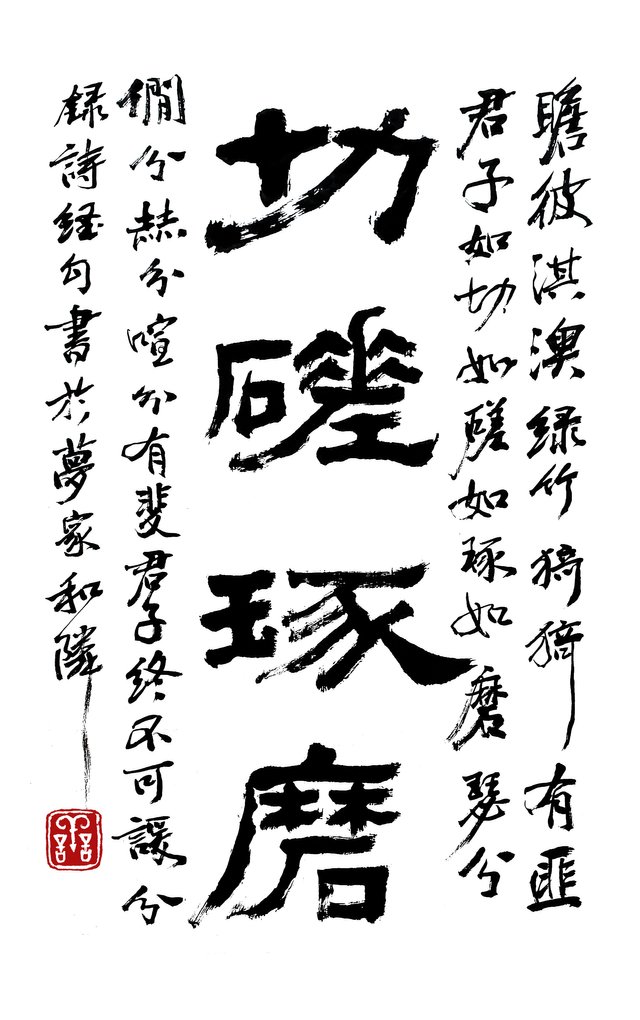 瞻彼淇澳緑竹猗猗有匪
君子如切如磋如琢如磨瑟兮
切磋琢磨
僩兮赫兮喧兮有斐君子終不可諼兮
録詩経句書於夢家和隣